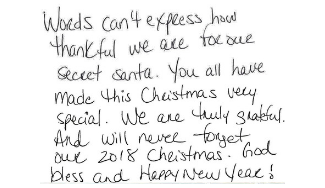 Words can't express how
thankful we are for our
secret santa. You all have
made this Christmas very
special. We are truly grateful.
And will never forget
our 2018 Christmas. God
bless and Happy New Year!